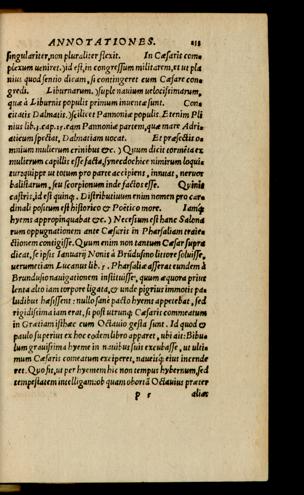 ANNOTATIONES. 233
singulariter, non pluraliter flexit. In Cæsaris com-
plexum ueniret.)id est, in congressum militarem, et ut pla
nius quod sentio dicam, si contingeret cum Cæsare con-
gredi. Liburnarum.)suple nauium uelocissimarum,
quæ à Liburnis populis primum inuentæ sunt. Con
citatis Dalmatis.)scilicet Pannoniæ populis. Etenim Pli
nius lib.3.cap.25.eam Pannoniæ partem, quæ mare Adri-
aticum spectat, Dalmatiam uocat. Et præsectis o-
mnium mulierum crinibus &c.) Quum dicit tormēta ex
mulierum capillis esse facta, synecdochice nimirum loqui-
tur, quippe ut totum pro parte accipiens, innuat, neruos
balistarum, seu scorpionum inde factos esse. Quinis
castris, id est quinq;. Distributiuum enim nomen pro car
dinali positum est historico & Poëtico more. Iamq́;
hyems appropinquabat &c.) Necesse est hanc Salona
rum oppugnationem ante Cæsaris in Pharsaliam traie-
ctionem contigisse. Quum enim non tantum Cæsar supra
dicat, se ipsis Ianuarij Nonis à Brūdusino littore soluisse,
uerumetiam Lucanus lib. 5. Pharsaliæ asserat eundem à
Brundusio nauigationem instituisse, quum æquora prius
lenta alto iam torpore ligata, & unde pigrius immotis pa-
ludibus hæsissent: nullo sanè pacto hyems appetebat, sed
rigidissima iam erat, si post utrunq; Cæsaris commeatum
in Græciam isthæc cum Octauio gesta sunt. Id quod &
paulo superius ex hoc eodem libro apparet, ubi ait: Bibu-
lum grauissima hyeme in nauibus suis excubasse, ut ulti-
mum Cæsaris comeatum exciperet, naueisq; eius incende
ret. Quo fit, ut per hyemem hic non tempus hybernum, sed
tempestatem intelligam: ob quam obortā Octauius præter
p 5 alias